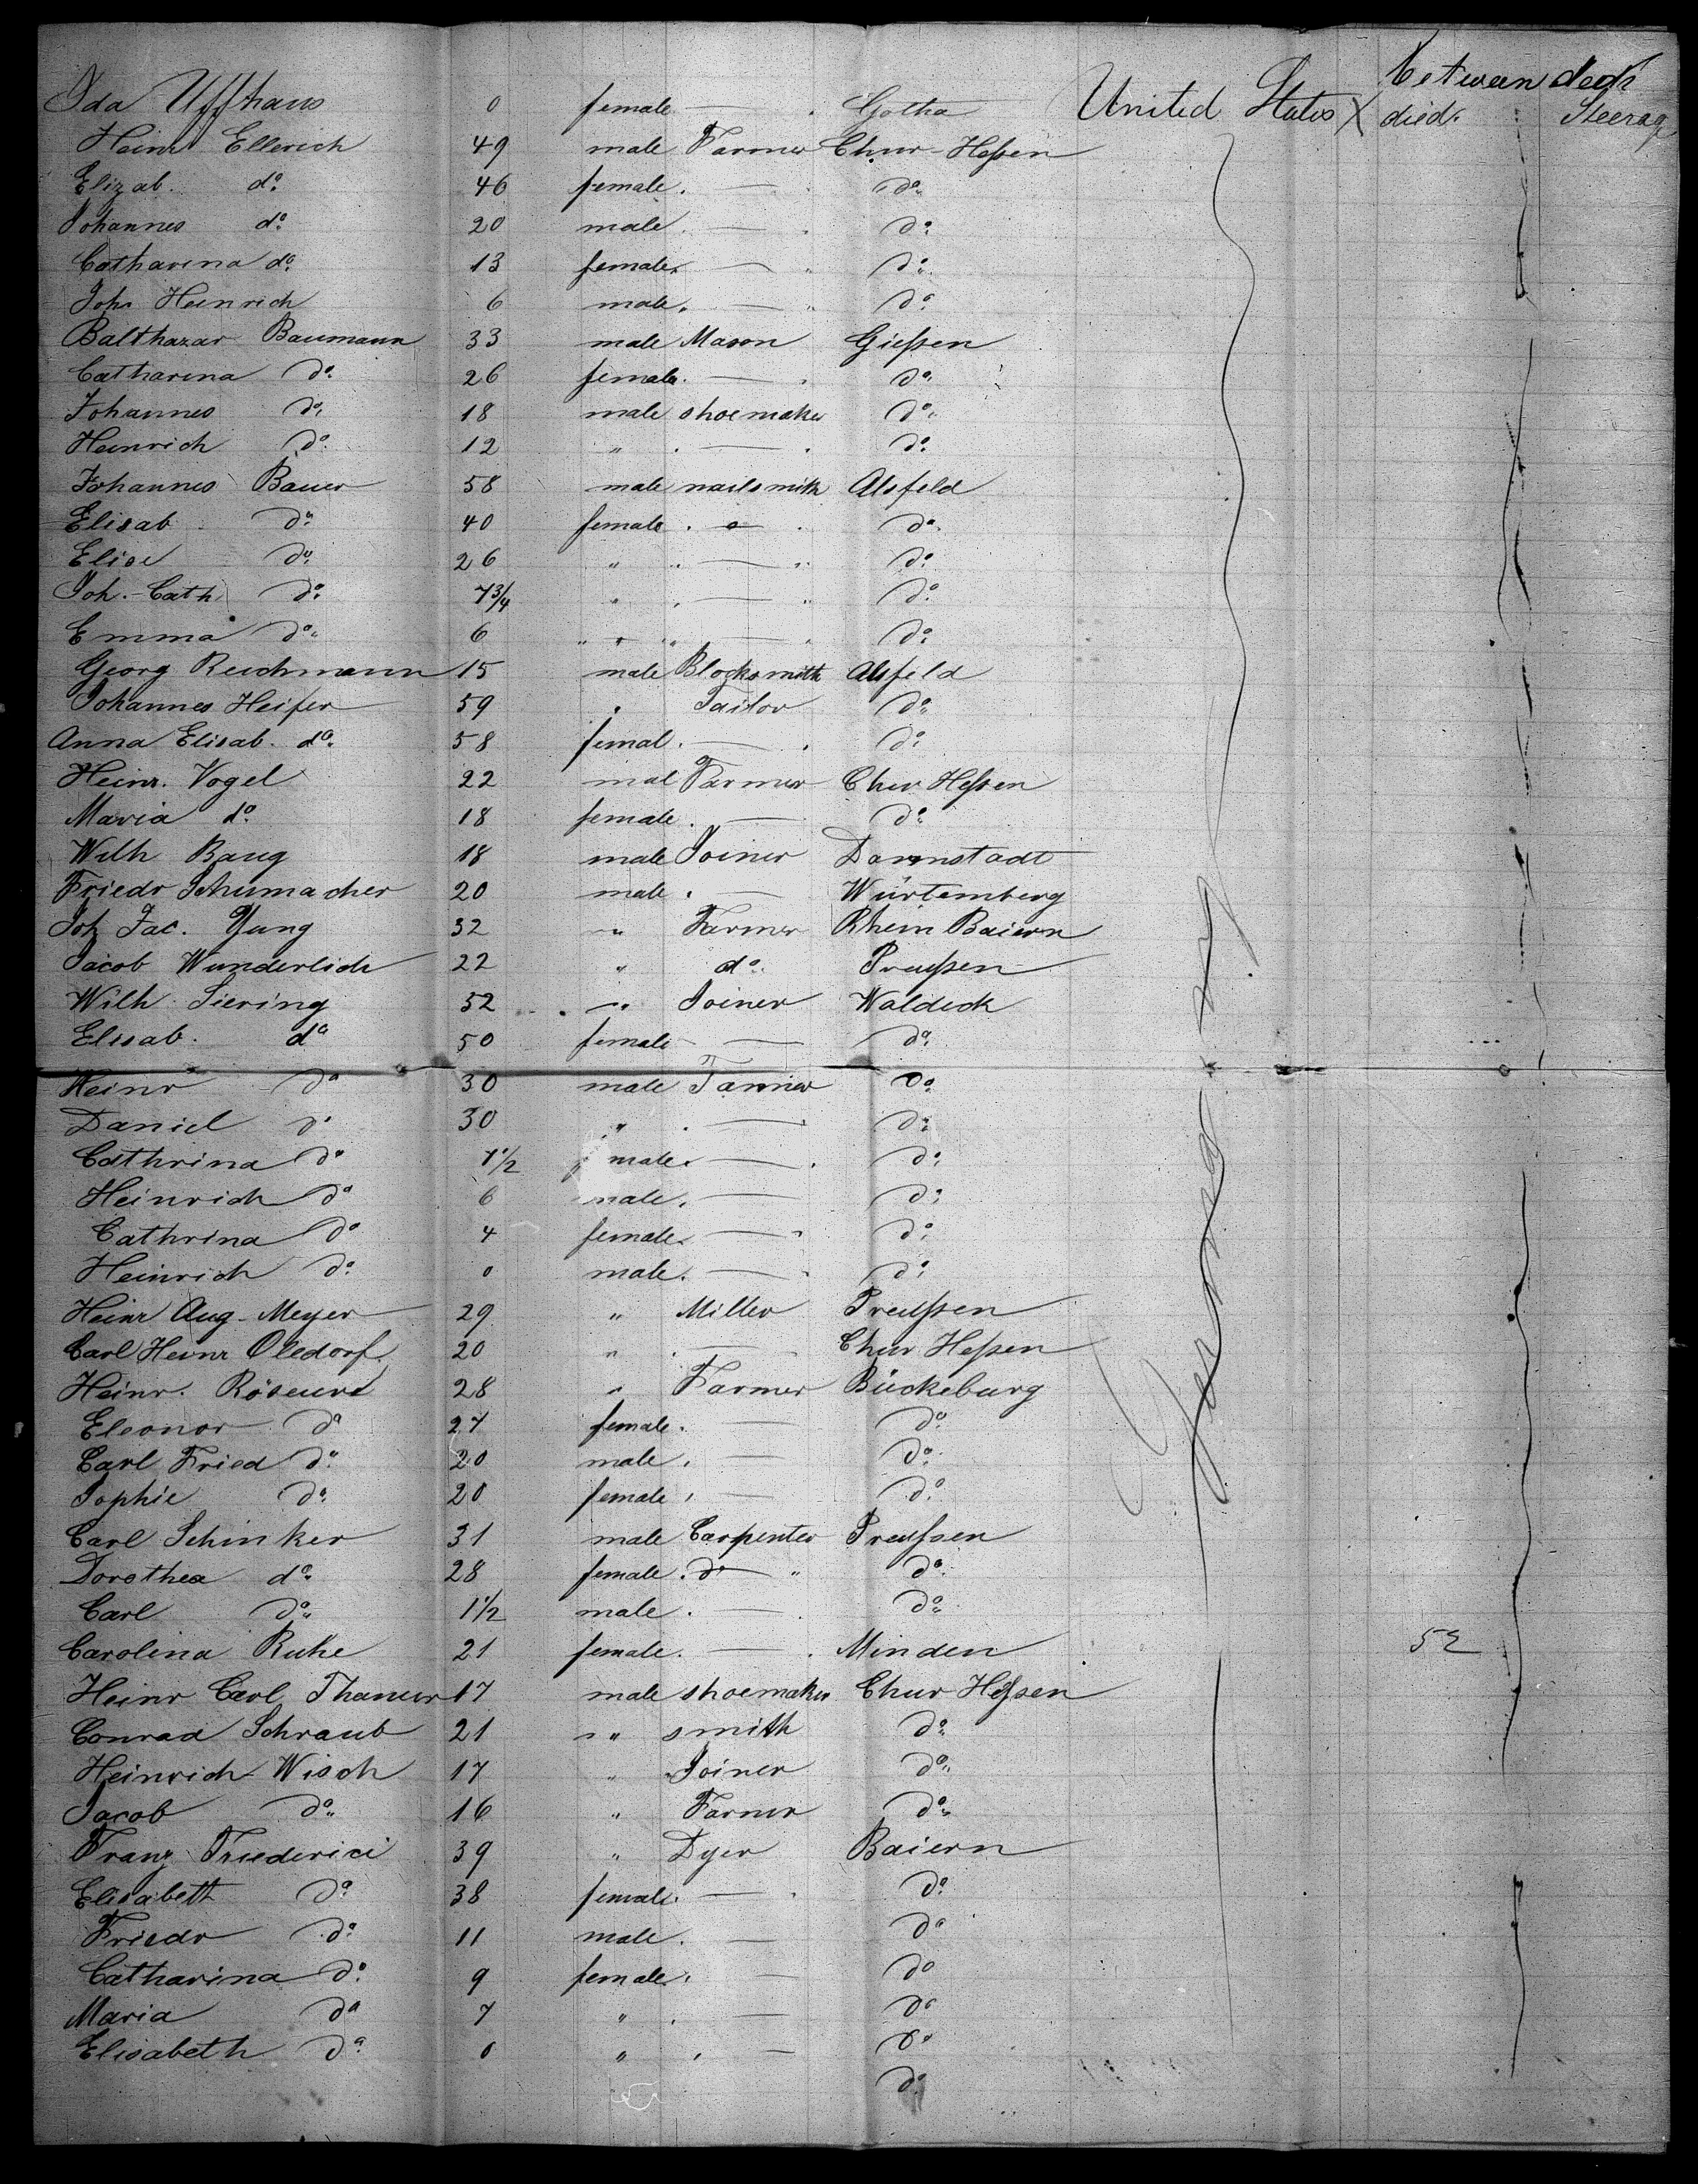 between deck
Ida Uffhaus 0 female — Gotha United States X died. Steerage
Heinr Ellerich 49 male Farmer Chur-Hessen
Elizab. do 46 female. — do
Johannes do 20 male. — do
Catharina do 13 female. — do
Joh. Heinrich 6 male. — do
Balthazar Baumann 33 male Mason Giessen
Catharina do 26 female. — do
Johannes do 18 male shoemaker do
Heinrich do 12 " — do
Johannes Bauer 58 male nailsmith Alsfeld
Elisab do 40 female. — do
Elise do 26 " — do
Joh.-Cath do 7 3/4 " — do
Emma do 6 " — do
Georg Reichmann 15 male Blocksmith Alsfeld
Johannes Heifer 59 " Tailor do
Anna Elisab. do 58 femal. — do
Heinr. Vogel 22 mal Farmer Chur Hessen
Maria do 18 female. — do
Wilh Baug 18 male Joiner Darmstadt
Friedr Schumacher 20 male. — Würtemberg
Joh Jac. Yung 32 " Farmer Rhein Baiern
Jacob Wunderlich 22 " do Preussen
Wilh Siering 52 " Joiner Waldeck
Elisab. do 50 female — do
Heinr do 30 male Farmer do
Daniel do 30 " — do
Cathrina do 7 1/2 male. — do
Heinrich do 6 male. — do
Cathrina do 4 female. — do
Heinrich do 0 male. — do
Heinr Aug. Meyer 29 " Miller Preussen
Carl Heinr Olldorf 20 " — Chur Hessen
Heinr. 28 " Farmer Bückeburg
Eleonor do 27 female. — do
Carl Fried do 20 male. — do
Sophie do 20 female. — do
Carl Schinker 31 male Carpenter Preussen
Dorothea do 28 female. do " do
Carl do 1 1/2 male. — do
Carolina Ruhe 21 female. — Minden 52
Heinr Carl 17 male shoemaker Chur Hessen
Conrad Schraub 21 " smith do
Heinrich Wisch 17 " Joiner do
Jacob do 16 " Farmer do
Franz Friederici 39 " Dyer Baiern
Elisabeth do 38 female. — do
Friedr do 11 male. — do
Catharina do 9 female. — do
Maria do 7 " — do
Elisabeth do 0 " — do
do
Germany